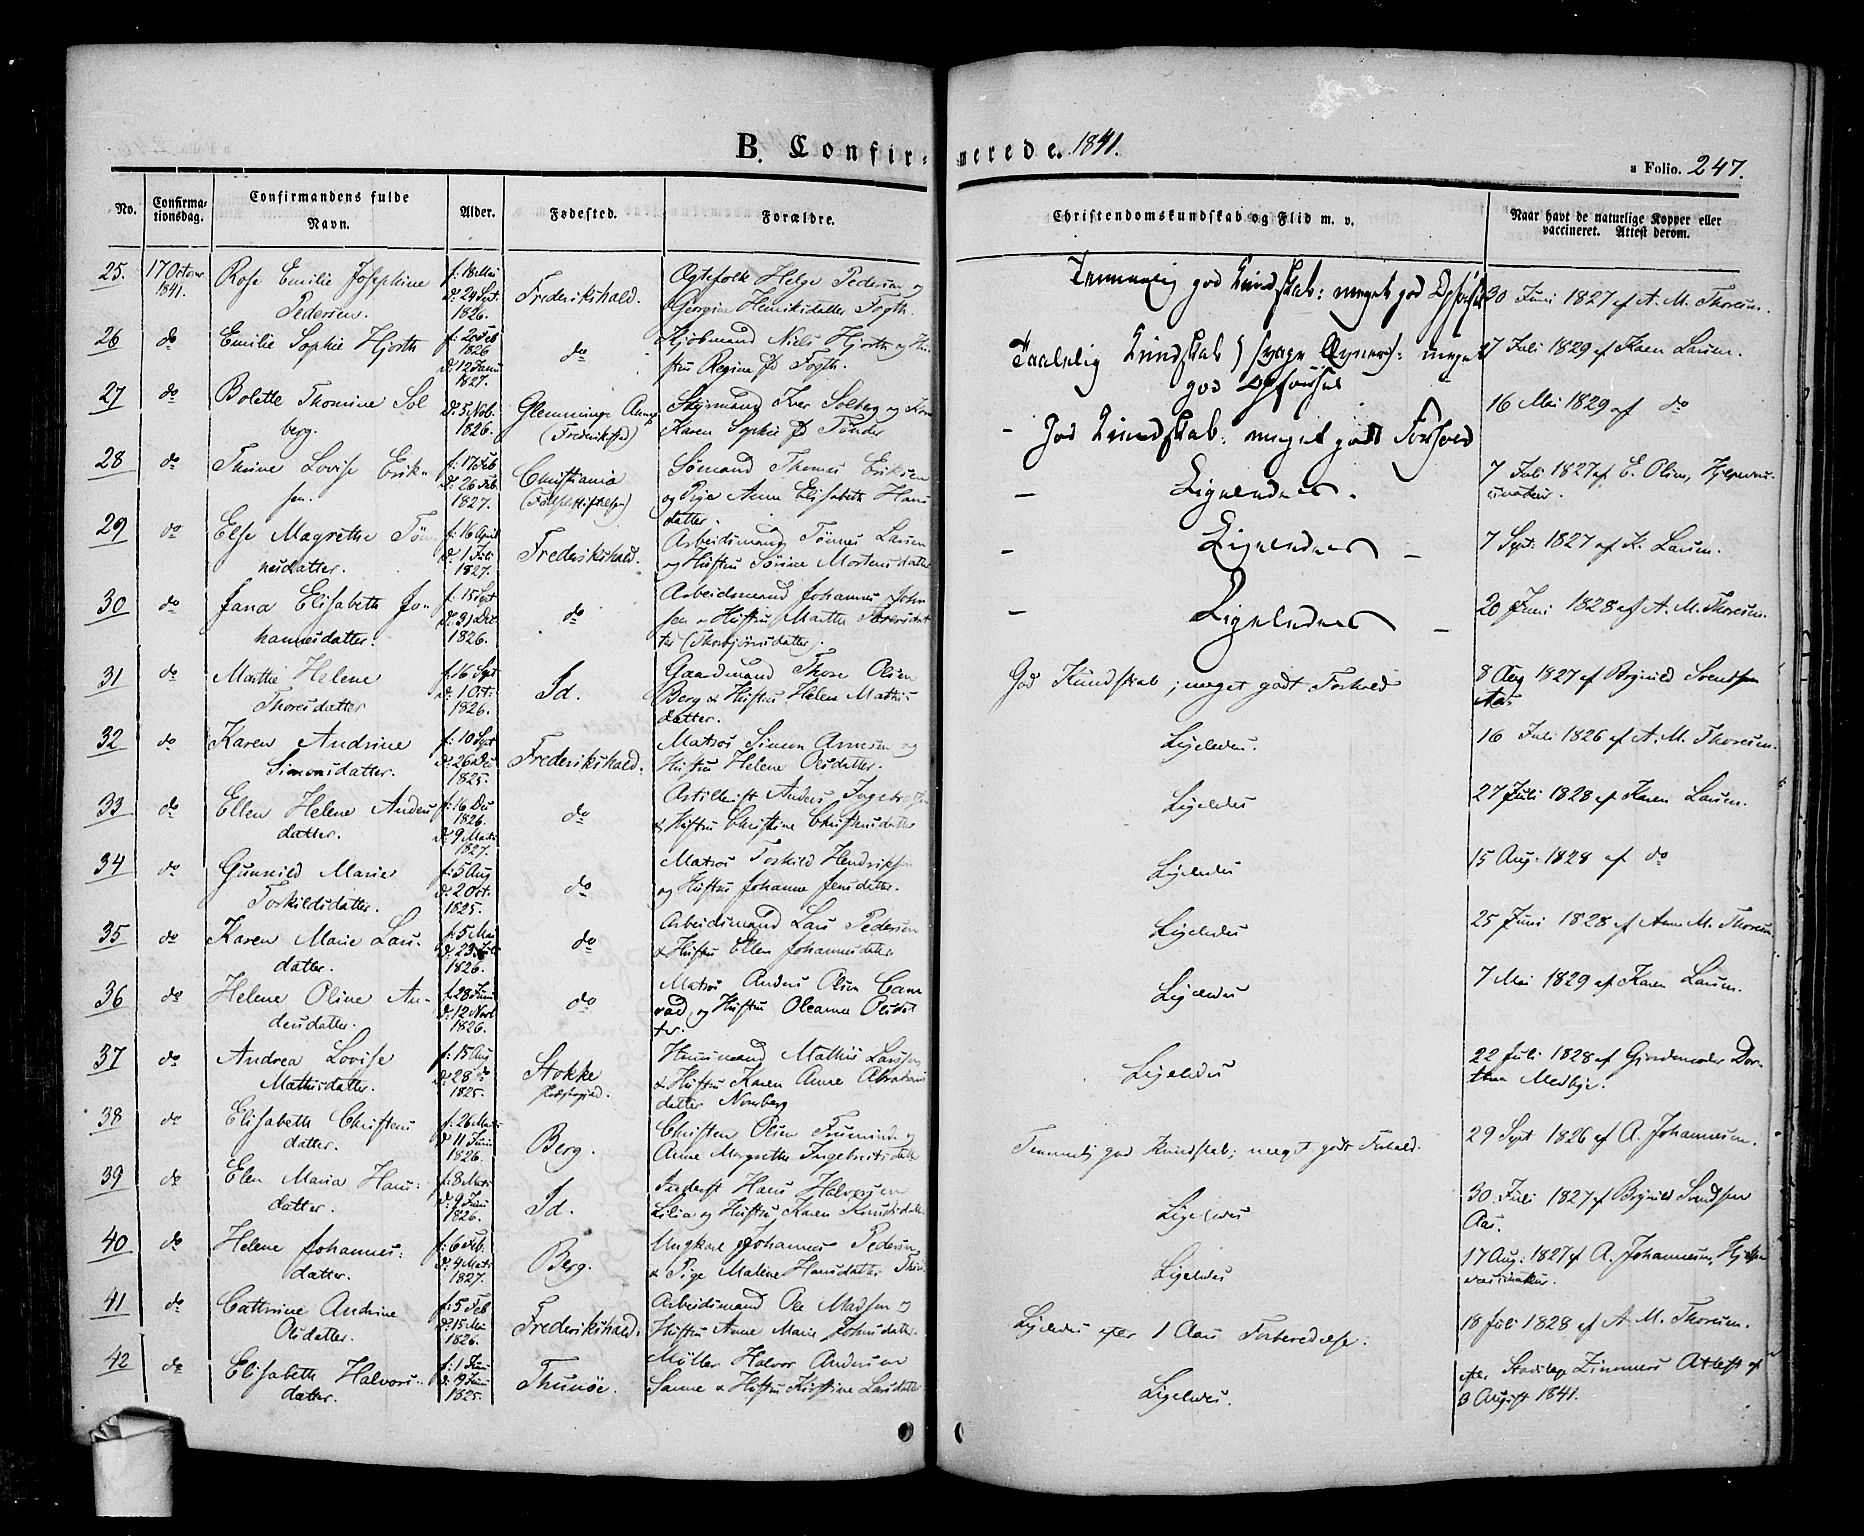 B. Confirmerede. 1841.
a Folio. 247.
No. Confirmationsdag. Confirmandens fulde Navn. Alder. Fødested. Forældre. Christendomskundskab og Flid m. v. Naar havt de naturlige Kopper eller vaccineret. Attest derom.
25. 17 October 1841. Rose Emilie Josephine f: 18 Mai Ogtefolk Helge Pedersen og
Pedersen. d: 24 Sept. 1826. Frederikshald. Georgine Henriksdatter Fogth. 30 Juni 1827 af A. M. Thoresen.
26 do Emilie Sophie Hjorth f: 20 Feb 1826 do Kjøbmand Niels Hjorth og Hu-
d: 12 Janu 1827. stru Regine Fd Fogth. god Opførsel 7 Juli 1829 af Karen Larsen.
27 do Bolette Thomine Sol
berg. d: 5 Nob. 1826. Glemminge (Frederikstad) Iver Solberg og
Karen Sophie Fd Tønder God Kundskab: meget godt Forhold 16 Mai 1829 af do
28 do Thrine Lovise Erik-
sen. f: 17 Feb d: 26 Feb. 1827. Christiania Sømand Thomas Eriksen
og Pige Anne Elisabeth Hans
datter. Ligeledes. 7 Juli 1827 af E. Olsen,
29 do Else Magrethe Tøn
nesdatter. f: 16 April d: 1 Juli 1827. Frederikshald. Arbeidsmand Tønnes Larsen
og Hustru Sørine Mortensdatter Ligeledes 7 Sept. 1827 af K. Larsen.
30 do Jana Elisabeth Jo-
hannesdatter. f: 15 Sept d: 31 Dec 1826. do Arbeidsmand Johannes John
sen og Hustru Marthe
ter (Thorbjørnsdatter). Ligeledes 20 Juni 1828 af A. M. Thoresen.
31 do Marthe Helene
Thoresdatter f: 16 Sept d: 1 Oct. 1826. Id. Gaardmand Thore Olsen
Berg & Hustru Helene Mathis
datter. God Kundskab; meget godt Forhold 8 Aug 1827 af Svendsen
Aas
32 do Karen Andrine
Simonsdatter. f: 10 Sept d: 26 Dec 1825. Frederikshald. Matros Simon Arnesen og
Hustru Helene Olsdatter. Ligeledes. 16 Juli 1826 af A. M. Thoresen.
33 do Ellen Helene Anders
datter. f: 16 Dec 1826. d: 9 Marts 1827. do Anders
& Hustru Christine Christensdatter Ligeledes 27 Juli 1828 af Karen Larsen.
34 do Gunnild Marie
Torkildsdatter. f: 5 Aug d: 2 Oct. 1825. do Matros Torkild Hendriksen
og Hustru Johanne Jensdatter. Ligeledes 15 Aug. 1828 af do
35 do Karen Marie Lars-
datter. f: 5 Mai d: 23 1826. do Arbeidsmand Lars Pedersen
& Hustru Ellen Johannesdatter Ligeledes 25 Juni 1828 af Ane M. Thoresen.
36 do Helene Oline An-
dersdatter. f: 28 Juni d: 12 Novb 1826. do Matros Anders Olsen Cam
rad, og Hustru Oleanna Olsdat
ter. Ligeledes 7 Mai 1829 af Karen Larsen.
37 do Andrea Lovise
Mathisdatter. f: 15 Aug d: 28 do 1825. Stokke Huusmand Mathis Larsen
& Hustru Karen Anne Abrahams
datter Ligeledes 22 Juli 1828 af Gjordemoder Dor-
thea Medbye.
38 do Elisabeth Christens
datter. f: 26 Marts d: 11 Juni 1826. Berg. Christen Olsen og
Anne Margrethe Ingebretsdatter Temmelig god Kundskab; meget godt Forhold. 29 Sept 1826 af A. Johannesen.
39 do Elen Maria Hans:
datter. f: 8 Marts d: 9 Juni 1826. Id. Hans Halvorsen
Lilia og Hustru Karen Knudsdatter Ligeledes 30 Juli 1827 af
Aas.
40 do Helene Johannes:
datter. f: 6 Feb. d: 4 Marts 1827. Berg. Ungkarl Johannes Pedersen
& Pige Malene Hansdatter Ligeledes 17 Aug: 1827 af A. Johannesen,
41 do Cathrine Andrine
Olsdatter. f: 5 Feb d: 15 Mai 1826. Frederikshald. Arbeidsmand Ole Madsen og
Hustru Anne Marie Johnsdatter. Ligeledes efter 1 Aars Forberedelse. 18 Juli 1828 af A. M. Thoresen.
42 do Elisabeth Halvors-
datter. f: 1 Juni d: 19 Juni 1825. Thunøe. Møller Halvor Andersen
Sanne & Hustru Kirstine Larsdatter Ligeledes. efter Zimmers Attest af
3 August 1841.